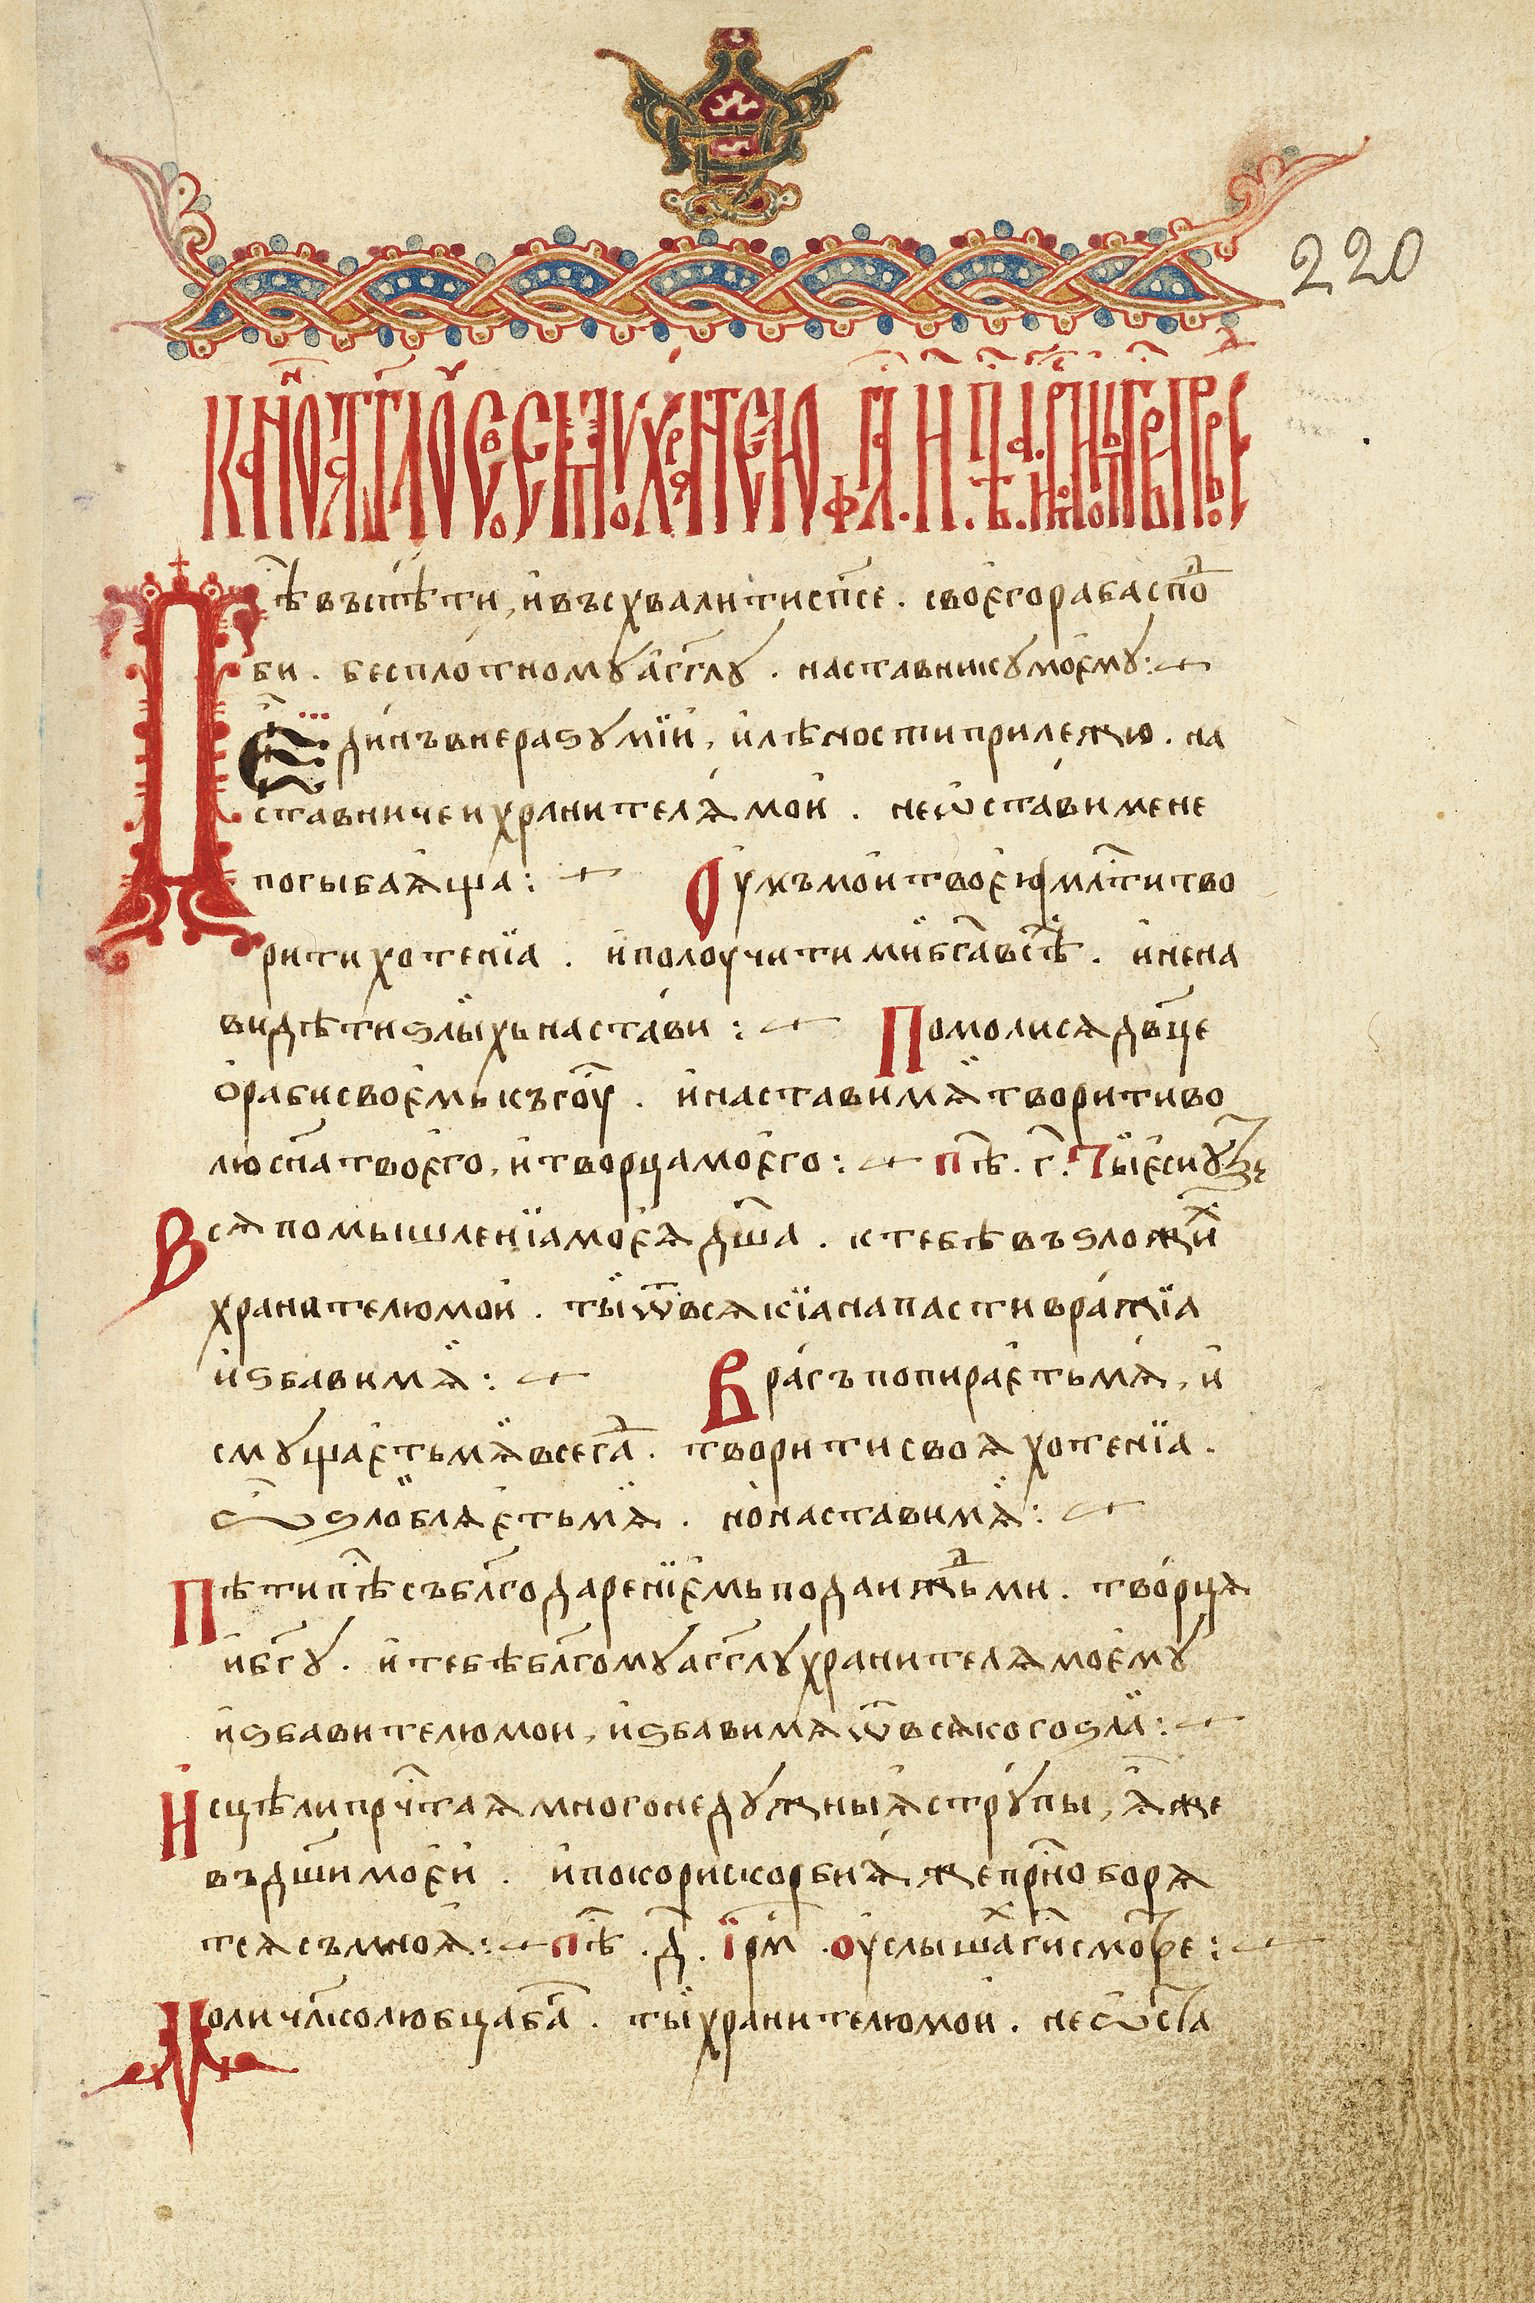 220
тѣ въспѣти, и въсхвалити сп҃се. своего раба спод
би. бесплотному аг҃глу. наставнику моему:
Единъ в неразумїи, и лѣности прилежю. на
ставниче и хранителѧ мои. не ѡстави мене
погыбаѧща: Оумъ мои твоею мл҃тити тво
рити хотенїа. и получити ми
видѣти ѕлыхь настави: Помолисѧ дв҃це
о раби своемь къ гоу. и настави мѧ творити во
лю сн҃а твоего, и творца моего: пѣ. г҃. Ты еси
Всѧ помышленїа моеѧ дш҃а. к тебѣ въѕложих
хранителю мои. ты ѿ всѧкїа напасти вражїа
иѕбави мѧ: Врагъ попираеть мѧ, и
смущаеть мѧ всегд҃а. творити своѧ хотенїа.
ѕлоблѧеть мѧ. но настави мѧ:
Пѣти пѣ съ блг҃одаренїемь подаждь ми. творцѧ
и бг҃у. и тебѣ блг҃ому аг҃глу хранителѧ моему
иѕбавителю мои, иѕбави мѧ ѿ всѧкого ѕла:
Исцѣли прч҃таѧ многонедужныѧ струпы, ѧже
въ дш҃и моеи. и покори скорбиѧже прн҃о борѧ
тсѧ съ мноѧ: пѣ. д҃. їрм. оуслышах ги смотре:
Моли чл҃колюбца ба҃. ты хранителю мои. не ѡста